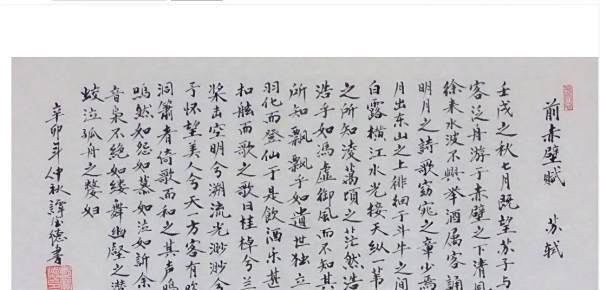 前赤壁赋 苏轼
壬戌之秋七月既望苏子与
客泛舟游于赤壁之下清风
徐来水波不兴举酒属客诵
明月之诗歌窈窕之章少焉
月出东山之上徘徊于斗牛之间
白露横江水光接天纵一苇
之所知凌萬頃之茫然浩
浩乎如冯虚御風而不知其
所知飘飘乎如遗世独立
羽化而登仙于是飲酒乐甚
扣舷而歌之歌曰桂棹兮兰
桨击空明兮溯流光渺渺兮
予怀望美人兮天一方客有吹
洞箫者倚歌而和之其声鸣
鸣然如怨如慕如泣如訴余
音袅不绝如缕舞幽壑之潜
蛟泣孤舟之嫠妇
辛卯年仲秋 德書